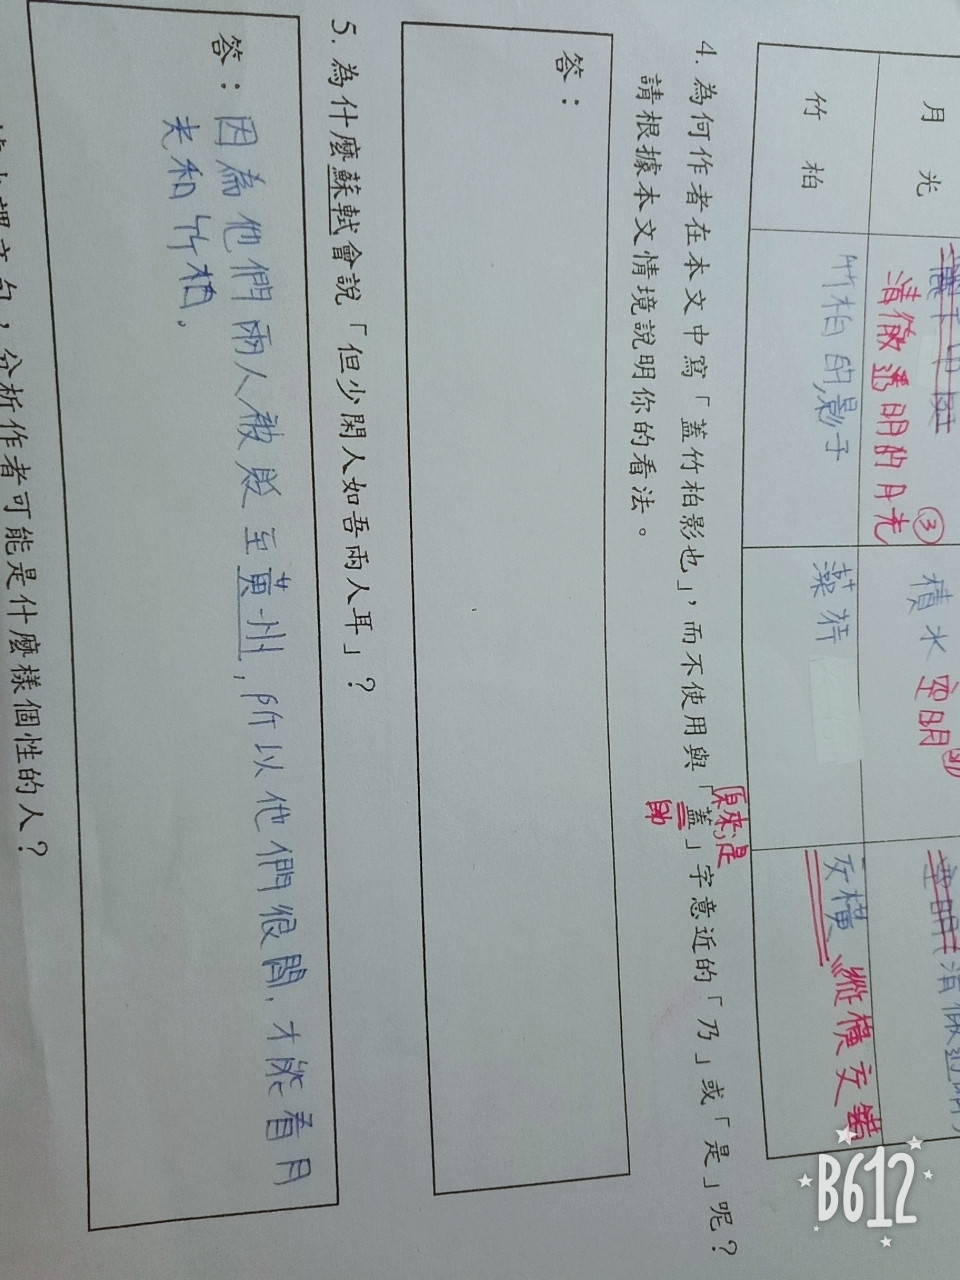 月光
清徹透明的月光
③
積水 空明
竹柏
竹柏的影子
藻荇
交橫
縱橫交錯
4. 為何作者在本文中寫「蓋竹柏影也」，而不使用與「蓋」字意近的「乃」或「是」呢？
原來；是
請根據本文情境說明你的看法。
答：
5. 為什麼蘇軾會說「但少閑人如吾兩人耳」？
答：因為他們兩人被貶至黃州，所以他們很閒，才能看月
光和竹柏。
分析作者可能是什麼樣個性的人？
B612